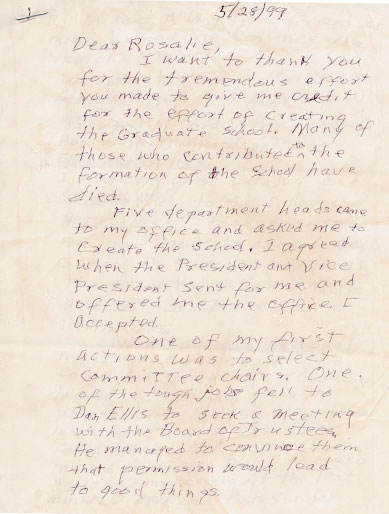 1
5/28/99
Dear Rosalie,
I want to thank you
for the tremendous effort
you made to give me credit
for the effort of creating
the Graduate School. Many of
those who contributed to the
formation of the School have
died.
Five department heads came
to my office and asked me to
create the School. I agreed
when the President and Vice
President sent for me and
offered me the office. I
accepted.
One of my first
actions was to select
committee chairs. One
of the tough jobs fell to
Dan Ellis to seek a meeting
with the Board of Trustees.
He managed to convince them
that permission would lead
to good things.